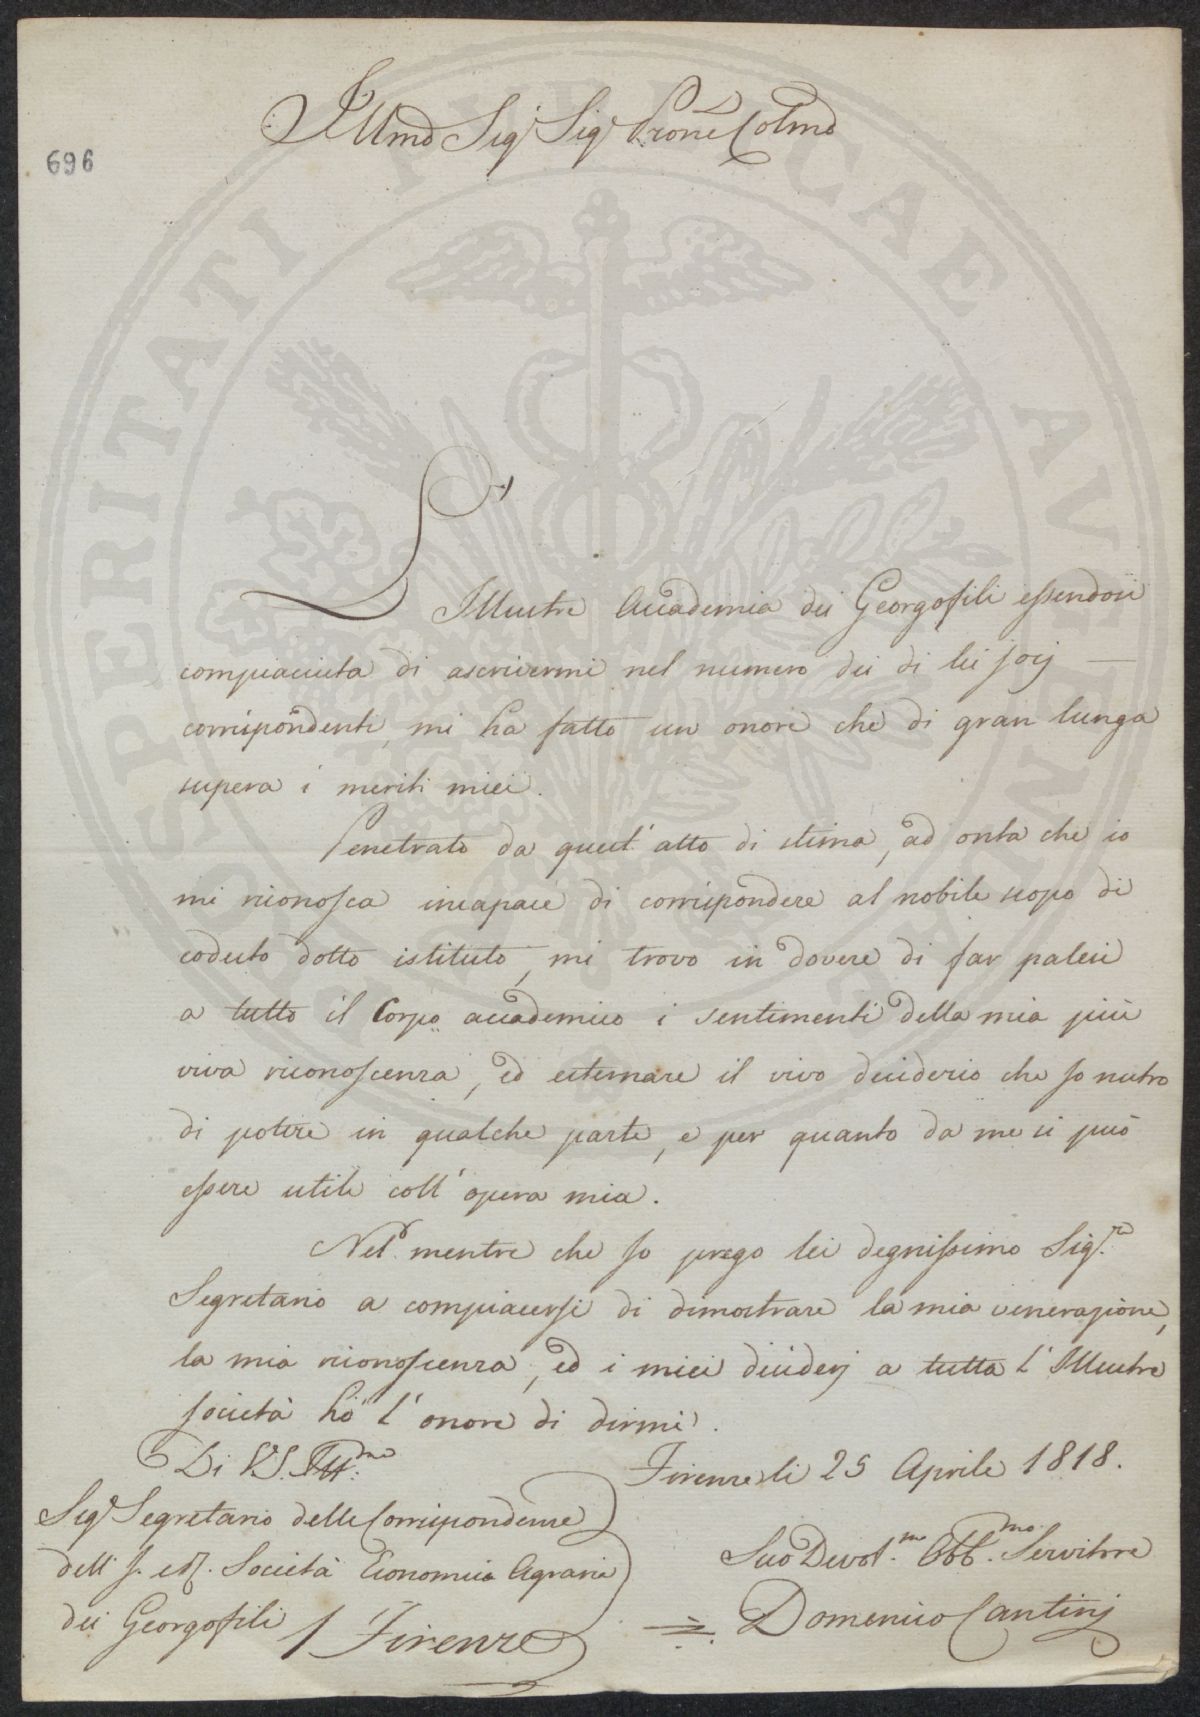 Illmo Sig.r Sig.r Prone Colmo
696
L'Illustre Accademia dei Georgofili essendosi
compiaciuta di ascrivermi nel numero dei di lei socj —
corrispondenti, mi ha fatto un onore che di gran lunga
supera i meriti miei.
Penetrato da quest' atto di stima, ad onta che io
mi riconosca incapace di corrispondere al nobile scopo di
codesto dotto istituto, mi trovo in dovere di far palesi
a tutto il Corpo accademico i sentimenti della mia più
viva riconoscenza, ed esternare il vivo desiderio che Io nutro
di potere in qualche parte, e per quanto da me si può
essere utile coll' opera mia.
Nel mentre che Io prego lei degnissimo Sig.re
Segretario a compiacersi di dimostrare la mia venerazione,
la mia riconoscenza, ed i miei desiderj a tutta l' Illustre
società hò l' onore di dirmi.
Di VS. Ill.ma
Firenze li 25 Aprile 1818.
Sig.r Segretario delle Corrispondenze
dell' I. e R. Società Economica Agraria
dei Georgofili / Firenze
Suo Devot.mo Obb.mo Servitore
Domenico Cantinj
PROSPERITATI PUBLICAE AUGENDAE